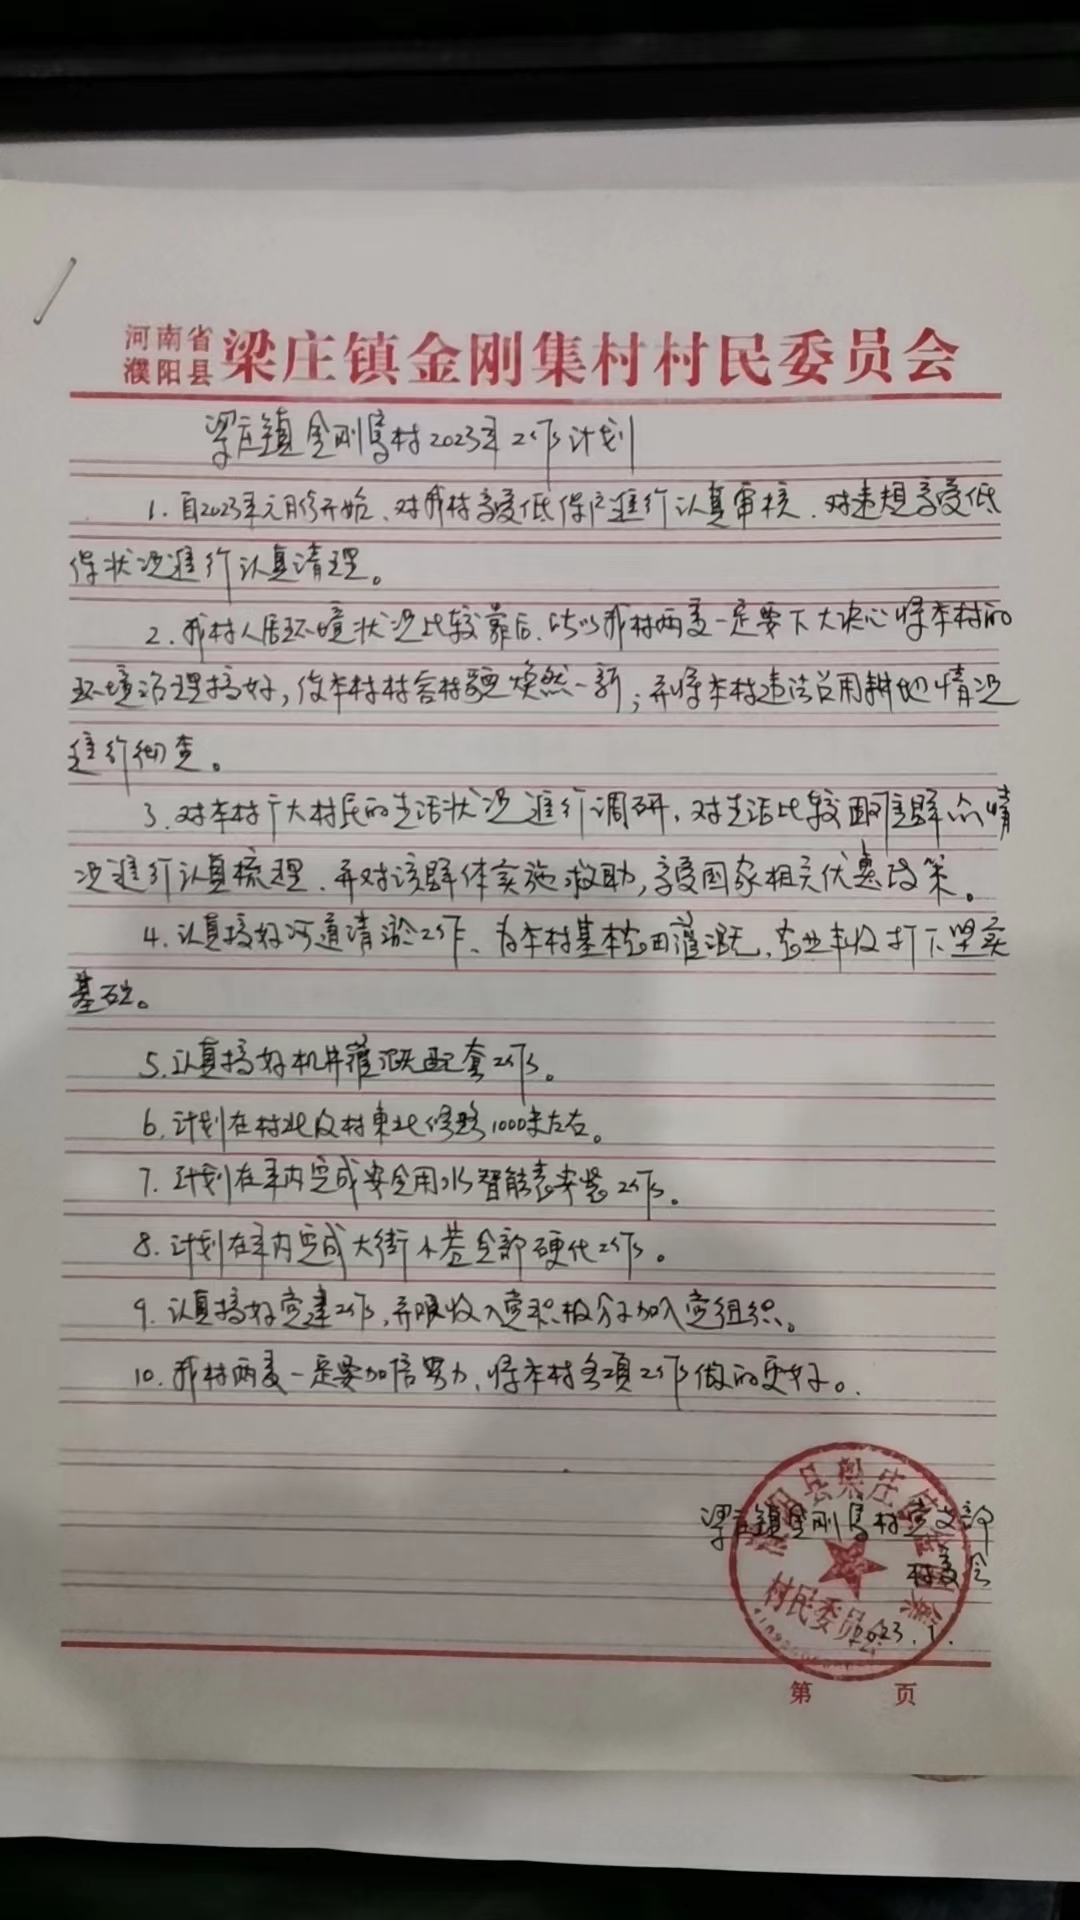 河南省
濮阳县 梁庄镇金刚集村村民委员会
梁庄镇金刚集村2023年工作计划
1.自2023年元月份开始、对我村享受低保户进行认真审核、对违规享受低
保状况进行认真清理。
2.我村人居环境状况比较靠后、所以我村两委一定要下大决心将本村的
环境治理搞好，使本村村容村貌焕然一新；并将本村违法占用耕地情况
进行彻查。
3.对本村广大村民的生活状况进行调研，对生活比较困难群众情
况进行认真梳理、并对该群体实施救助，享受国家相关优惠政策。
4.认真搞好河道清淤工作、为本村基本农田灌溉、农业丰收打下坚实
基础。
5.认真搞好机井灌溉配套工作。
6.计划在村北及村东北修路1000米左右。
7.计划在年内完成安全用水智能表安装工作。
8.计划在年内完成大街小巷全部硬化工作。
9.认真搞好党建工作，并吸收入党积极分子加入党组织。
10.我村两委一定要加倍努力、将本村各项工作做的更好。
梁庄镇金刚集村党支部
村委会
2023.1.
濮阳县梁庄镇金刚集
村民委员会
第 页